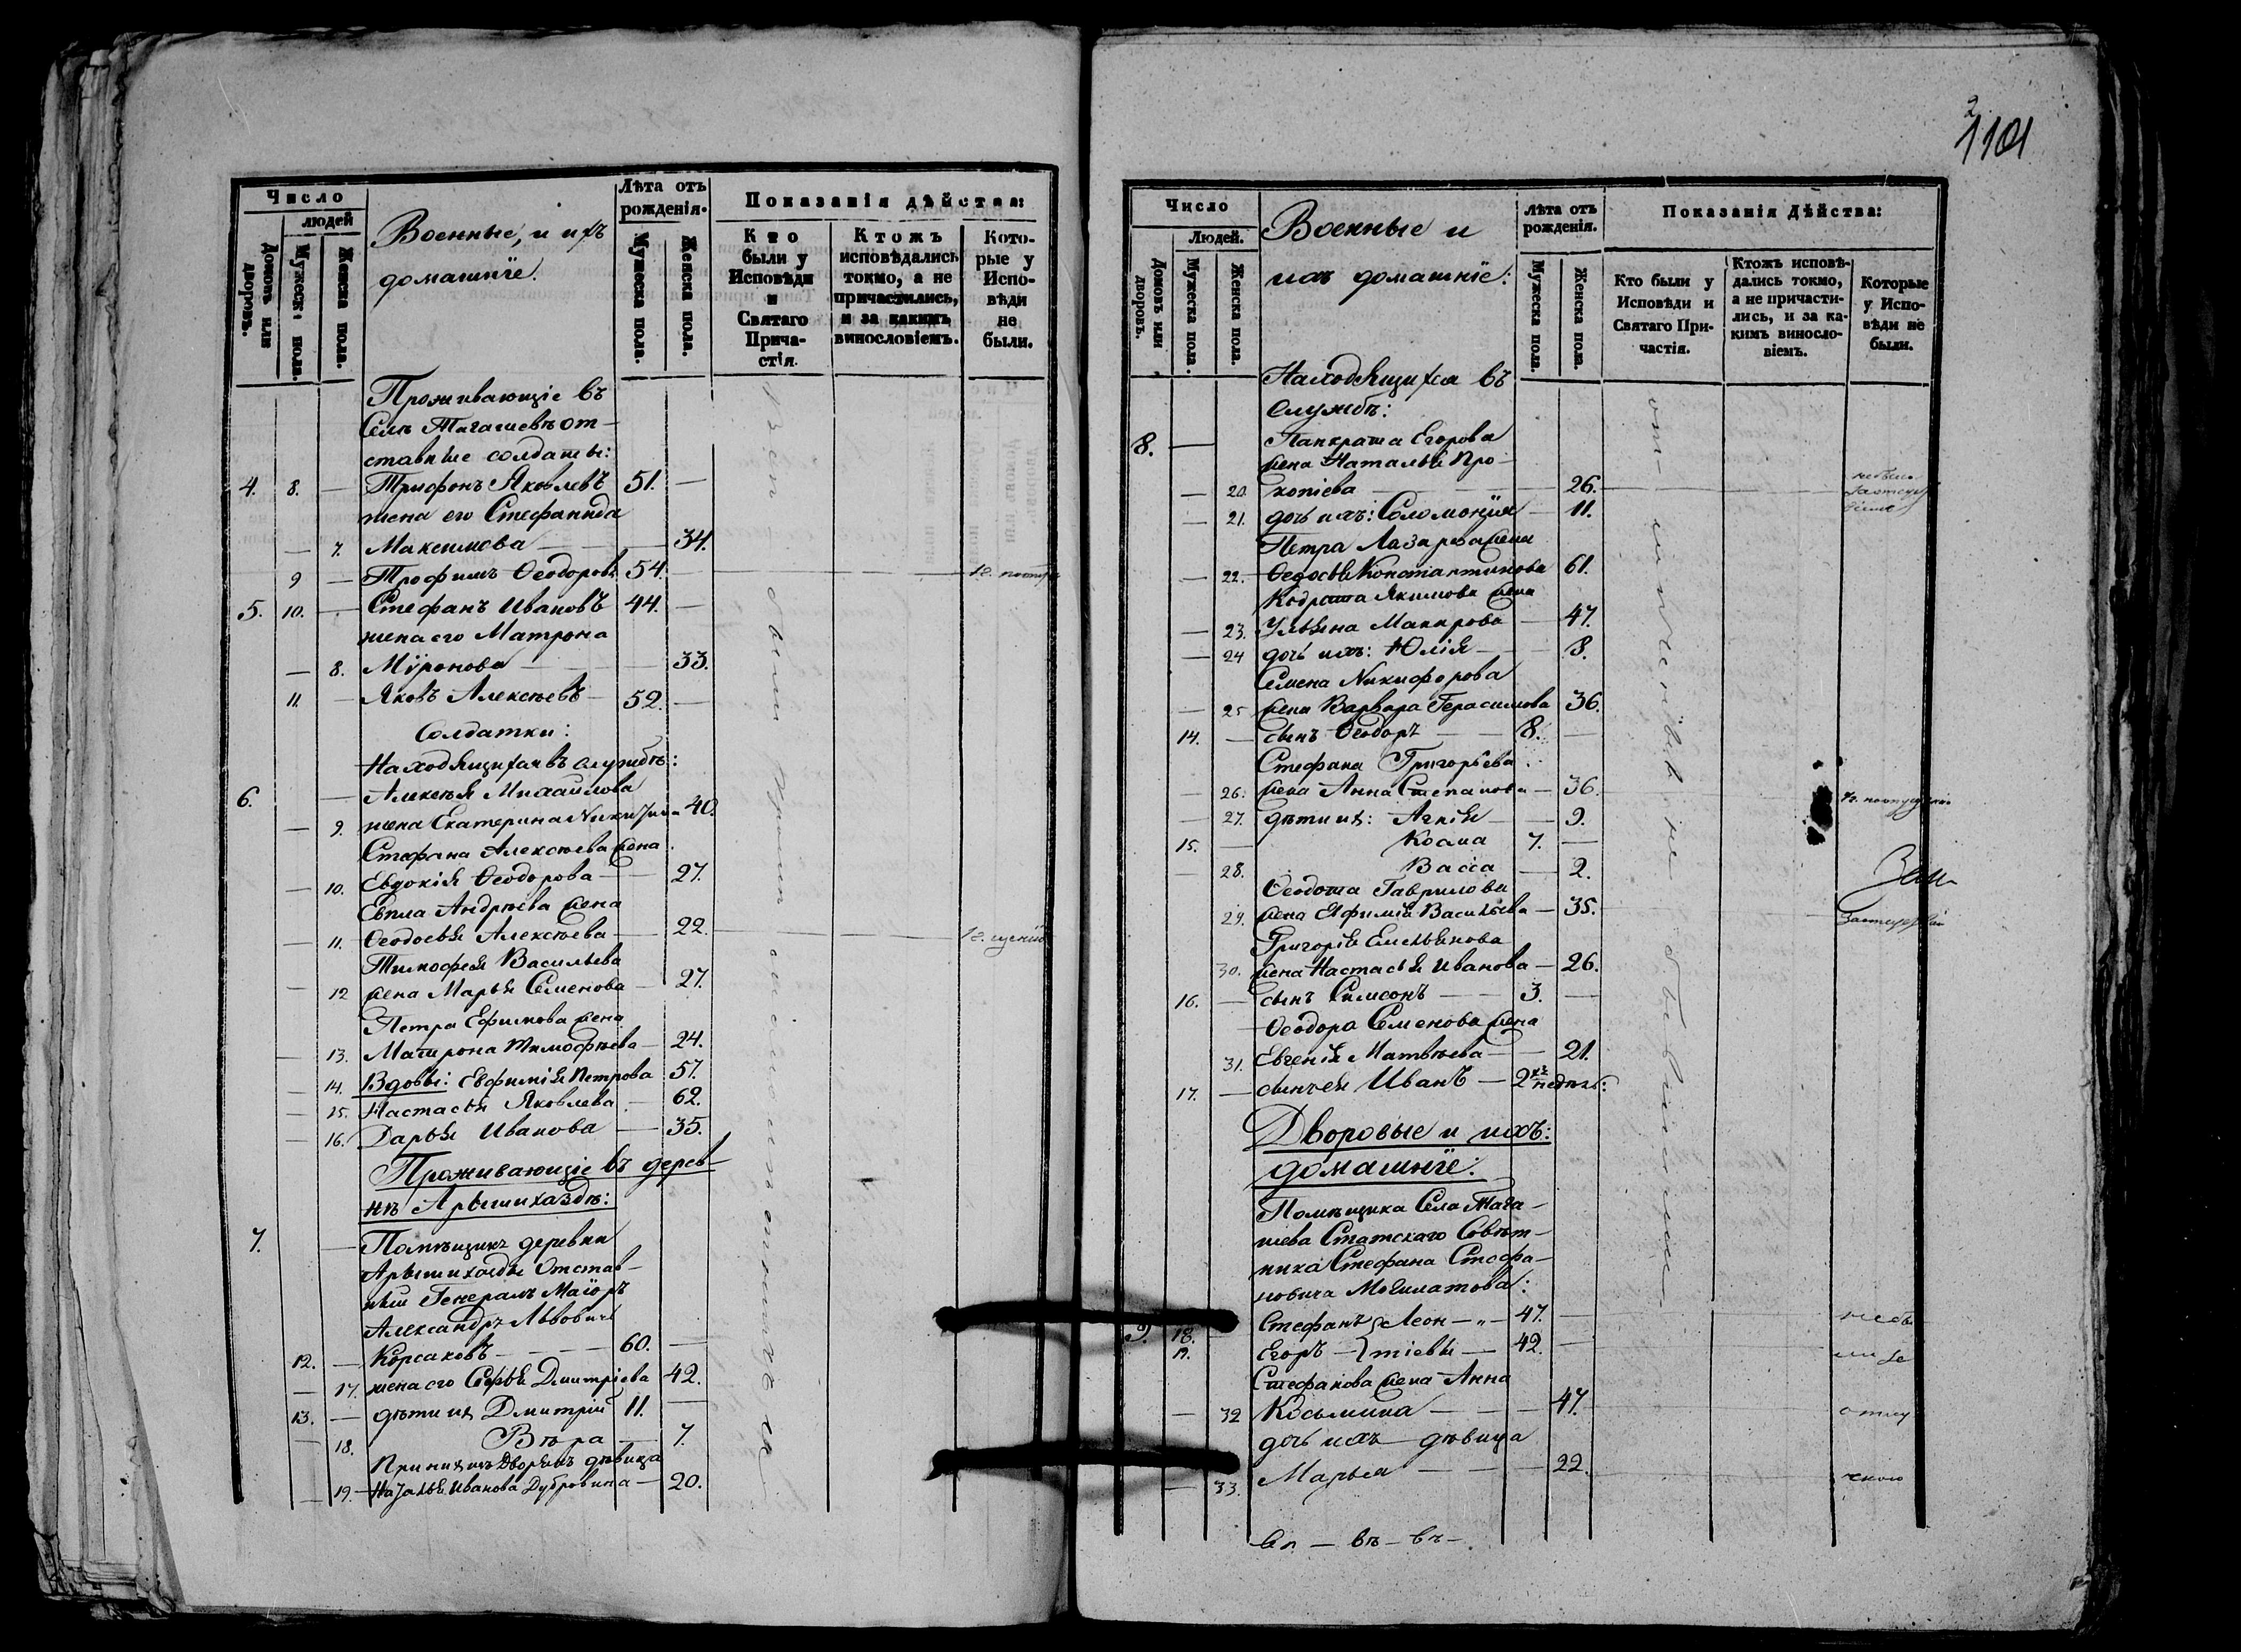 Число
людей
Домовъ или дворовъ.
Мужеска пола.
Женска пола.
Военные, и ихъ
домашнїе.
Лѣта отъ
рожденія.
Мужеска пола.
Женска пола.
Показанія дѣйства:
Кто
были у
Исповѣди
и
Святаго
Прича-
стія.
Ктожъ
исповѣдались
токмо, а не
причастились,
и за какимъ
винословіемъ.
Кото-
рые у
Испо-
вѣди
не
были.
Проживающіе въ
Селѣ Тагашевѣ от-
ставные солдаты:
4. 8. — Трифонъ Яковлевъ 51. —
жена его Стефанида
— 7. Максимова — 34.
9 — Трофимъ Ѳеодоровъ 54.
5. 10. — Стефанъ Ивановъ 44. —
жена его Матрона
— 8. Мѵронова — 33.
11. — Яковъ Алексѣевъ — 52. —
Солдатки:
Находящихся въ службѣ:
6. — Алексѣя Михайлова
— 9. жена Екатерина Никитина 40.
Стефана Алексѣева жена
— 10. Евдокія Ѳеодорова — 27.
Евпла Андрѣева жена
— 11. Ѳеодосья Алексѣева — 22.
Тимофея Васильева
— 12 жена Марья Семенова — 27.
Петра Ефимова жена
— 13. Матрона Тимофѣева — 24.
— 14. Вдовы: Евфимія Петрова 57.
— 15. Настасья Яковлева — 62.
— 16. Дарья Иванова — 35.
Проживающіе въ дерев-
нѣ Арышихаздѣ:
7. — Помѣщикъ деревни
Арышихазды Отстав-
ный Генералъ Маіоръ
Александръ Львовичъ
12. — Корсаковъ — 60. —
— 17. жена его Софья Дмитріева 42.
13. — дѣти их Дмитрій 11. —
— 18. Вѣра — 7.
При нихъ дворянъ дѣвица
— 19. Наталья Иванова Дубровина — 20.
2
1101
Число
Людей.
Домовъ или дворовъ.
Мужеска пола.
Женска пола.
Военные и
ихъ домашніе:
Лѣта отъ
рожденія.
Мужеска пола.
Женска пола.
Показанія Дѣйства:
Кто были у
Исповѣди и
Святаго При-
частія.
Ктожъ исповѣ-
дались токмо,
а не причасти-
лись, и за ка-
кимъ виносло-
віемъ.
Которые
у Испо-
вѣди не
были.
Находящихся въ
службѣ:
8. — Панкрата Егорова
жена Наталья Про-
— 20. копіева — 26.
— 21. дочь ихъ: Соломонія — 11.
Петра Лазарева жена
— 22. Ѳедосья Константинова 61.
Кодрата Якимова жена
— 23. Ульяна Макарова — 47.
— 24 дочь ихъ: Юлія — 8.
Семена Никифорова
— 25 жена Варвара Герасимова 36.
14. — сынъ Ѳеодоръ — 8. —
Стефана Григорьева
— 26. жена Анна Степанова — 36.
— 27. дѣти их: Агнія — 9.
15. — Косма 7. —
— 28. Васса — 2.
Ѳеодота Гаврилова
29. жена Евфимія Васильева — 35.
Григорія Емельянова
30. жена Настасья Иванова — 26.
16. — сынъ Симсонъ — 3. —
Ѳеодора Семенова жена
31. Евгенія Матвѣева — 21.
17. — сынъ ея Иванъ — 2хъ недѣль:
Дворовые и ихъ:
домашнїе:
Помѣщика Села Тага-
шева Статскаго Совѣт-
ника Стефана Стефа-
новича
9. 18. — Стефанъ } Леон — 47. —
19. Егоръ — } тіевы — 42. —
Стефанова жена Анна
— 32 Козьмина — 47.
дочь ихъ дѣвица
— 33. Марья — 22.